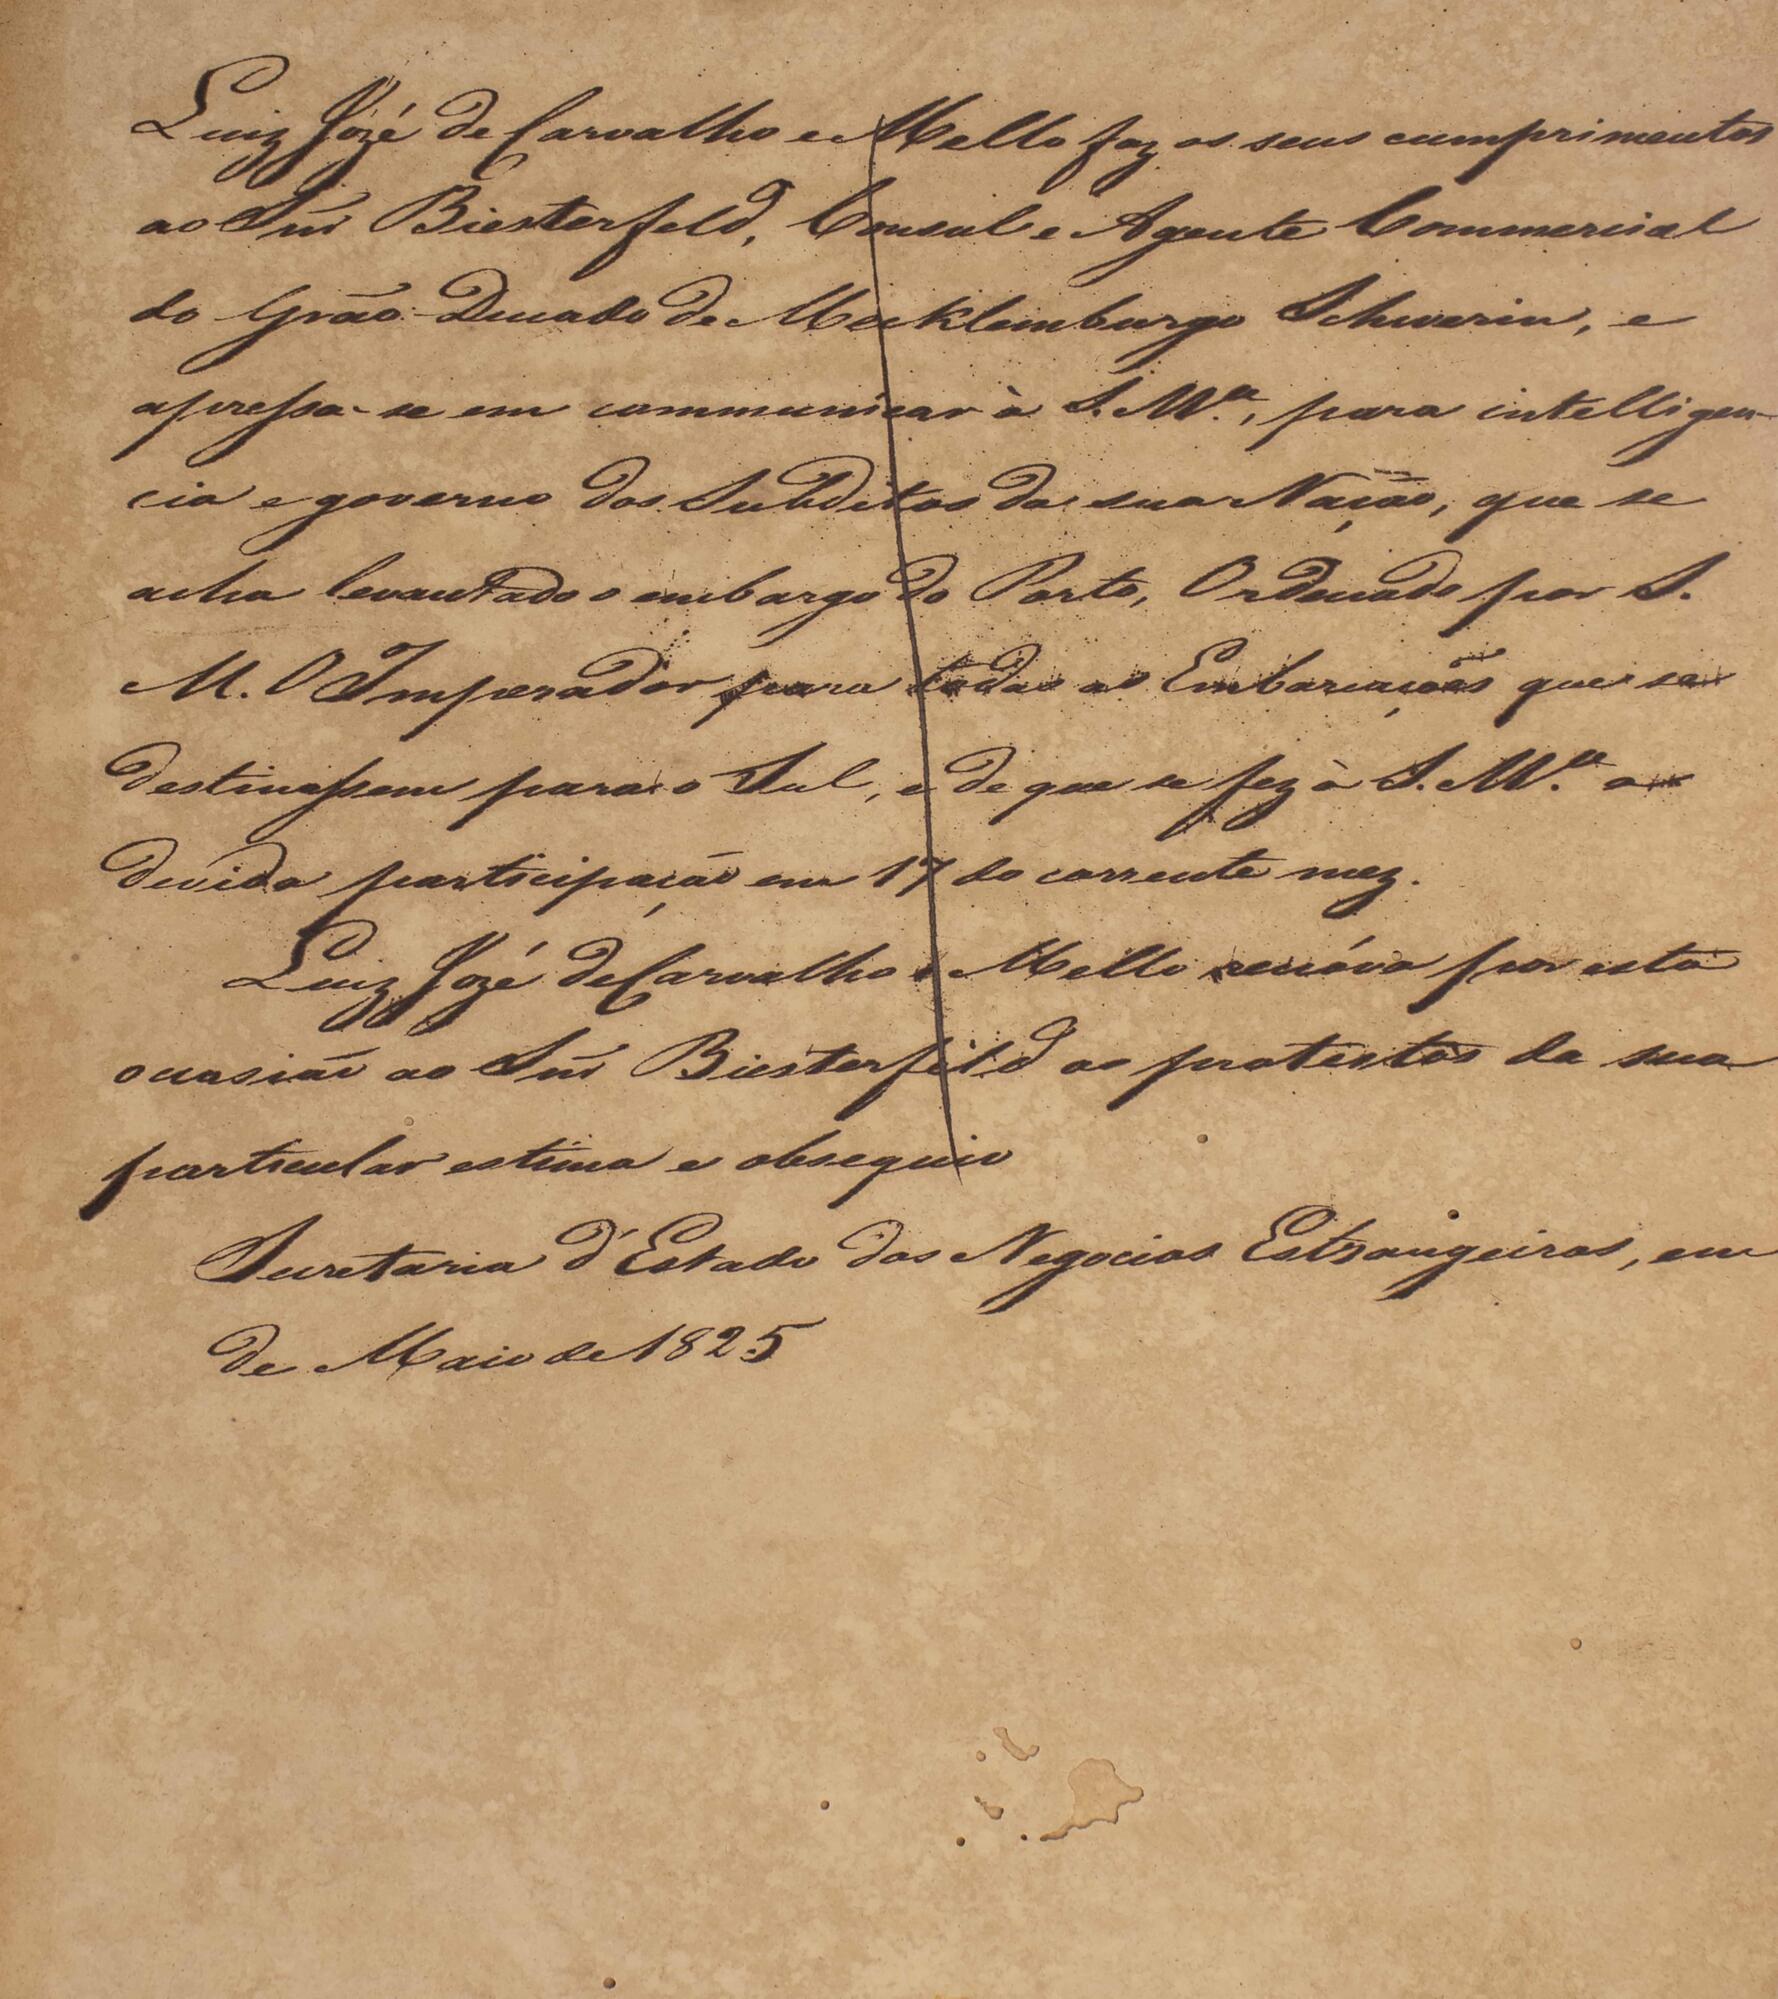 Luiz Jozé de Carvalho e Mello faz os seus cumprimentos
ao Snr̃ Biesterfeld, Consul e Agente Commercial
do Grão-Ducado de Mecklemburgo Schwerin, e
apressa-se em communicar à S. M.ce, para intelligen-
cia e governo dos Subditos da sua Nação, que se
acha levantado o embargo do Porto, Ordenado por S.
M. O Imperador para todas as Embarcações que se
destinassem para o Sul, e de que se fez à S. M.ce a
devida participação em 17 do corrente mez.
Luiz Jozé de Carvalho e Mello renóva por esta
occasião ao Snr̃ Biesterfeld os protestos da sua
particular estima e obsequio
Secretaria d'Estado dos Negocios Estrangeiros, em
de Maio de 1825